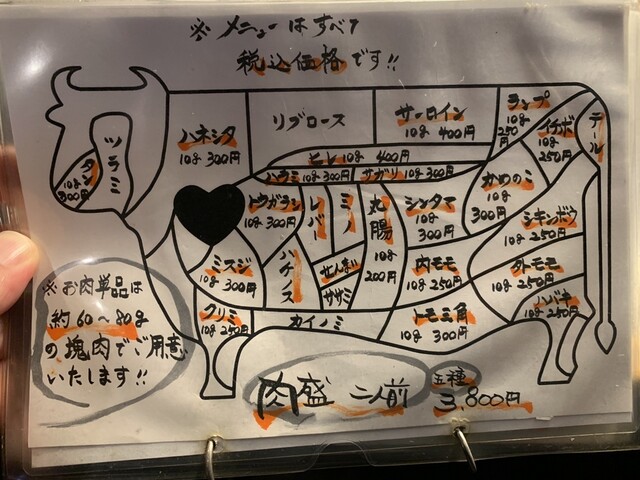 ※メニューはすべて
税込価格です!!
ツラミ
タン
10g
300円
ハネシタ
10g 300円
リブロース
サーロイン
10g 400円
ランプ
10g
250円
イチボ
10g
250円
テール
ヒレ 10g 400円
ハラミ 10g 300円
サガリ 10g 300円
トウガラシ
10g 300円
レバー
ミノ
丸腸
10g
200円
シンタマ
10g
300円
かめのこ
10g
300円
シキンボウ
10g 250円
ミスジ
10g 300円
ハチノス
せんまい
ササミ
内モモ
10g 250円
外モモ
10g 250円
ハバキ
10g 250円
クリミ
10g 250円
カイノミ
トモ三角
10g 300円
※お肉単品は
約60〜80g
の塊肉でご用意
いたします!!
肉盛 二人前
五種
3,800円